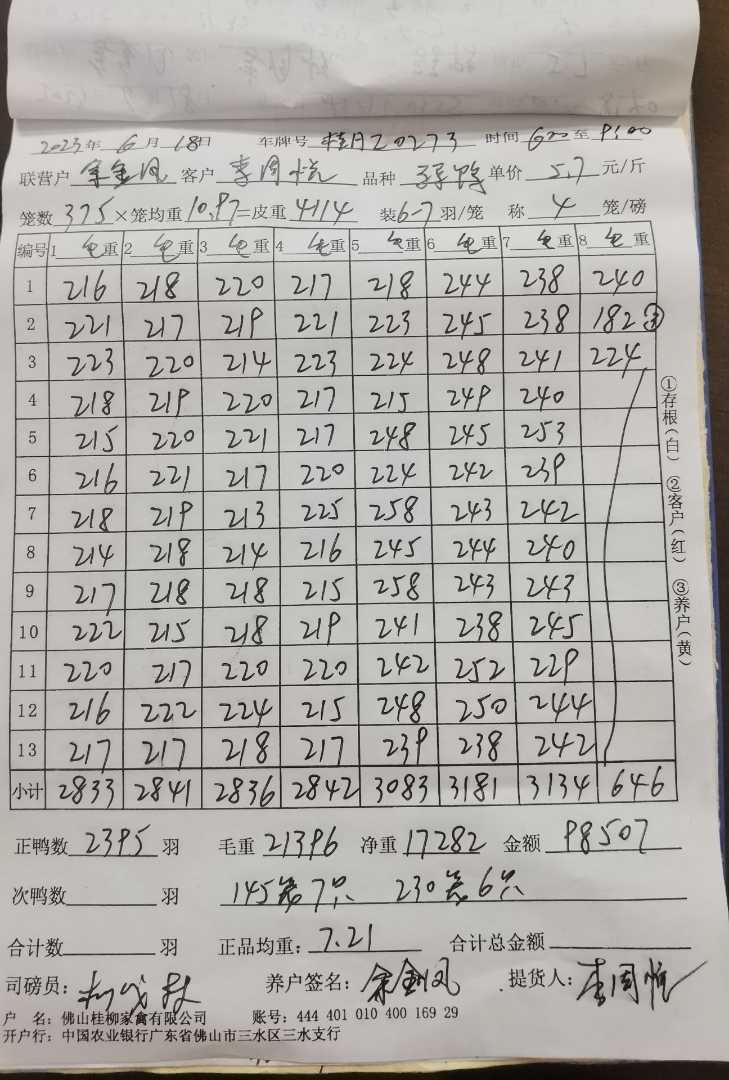 2023年 6月 18日 车牌号 桂A Z0273 时间 6:00 至 9:00
联营户 余金凤 客户 李周悦 品种 单价 5.7 元/斤
笼数 375 ×笼均重 10.97 =皮重 4114 装 6-7 羽/笼 称 4 笼/磅
编号 1 毛重 2 毛重 3 毛重 4 毛重 5 毛重 6 毛重 7 毛重 8 毛重
1 216 218 220 217 218 244 238 240
2 221 217 219 221 223 245 238 182 ③
3 223 220 214 223 224 248 241 224
4 218 219 220 217 215 249 240
5 215 220 221 217 248 245 253
6 216 221 217 220 224 242 239
7 218 219 213 225 258 243 242
8 214 218 214 216 245 244 240
9 217 218 218 215 258 243 243
10 222 215 218 219 241 238 245
11 220 217 220 220 242 252 229
12 216 222 224 215 248 250 244
13 217 217 218 217 239 238 242
小计 2833 2841 2836 2842 3083 3181 3134 646
①存根(白) ②客户(红) ③养户(黄)
正鸭数 2395 羽 毛重 21396 净重 17282 金额 98507
次鸭数 羽 145笼7只 230笼6只
合计数 羽 正品均重: 7.21 合计总金额
司磅员: 养户签名: 余金凤 提货人: 李周悦
户 名: 佛山桂柳家禽有限公司 账号: 444 401 010 400 169 29
开户行: 中国农业银行广东省佛山市三水区三水支行